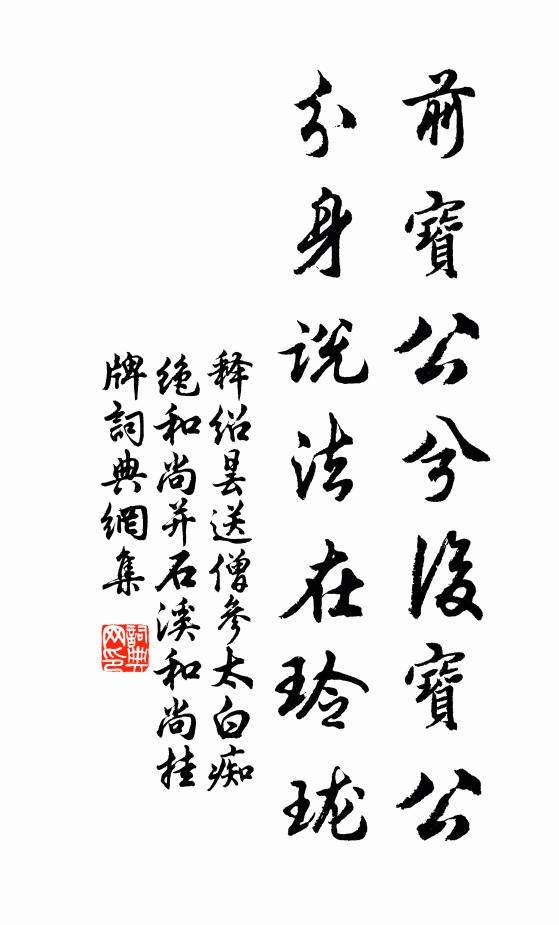 前寶公兮後寶公
分身说法在玲珑
释绍昙送僧參太白痴
绝和尚并石溪和尚挂
牌詞典網集
詞典網印